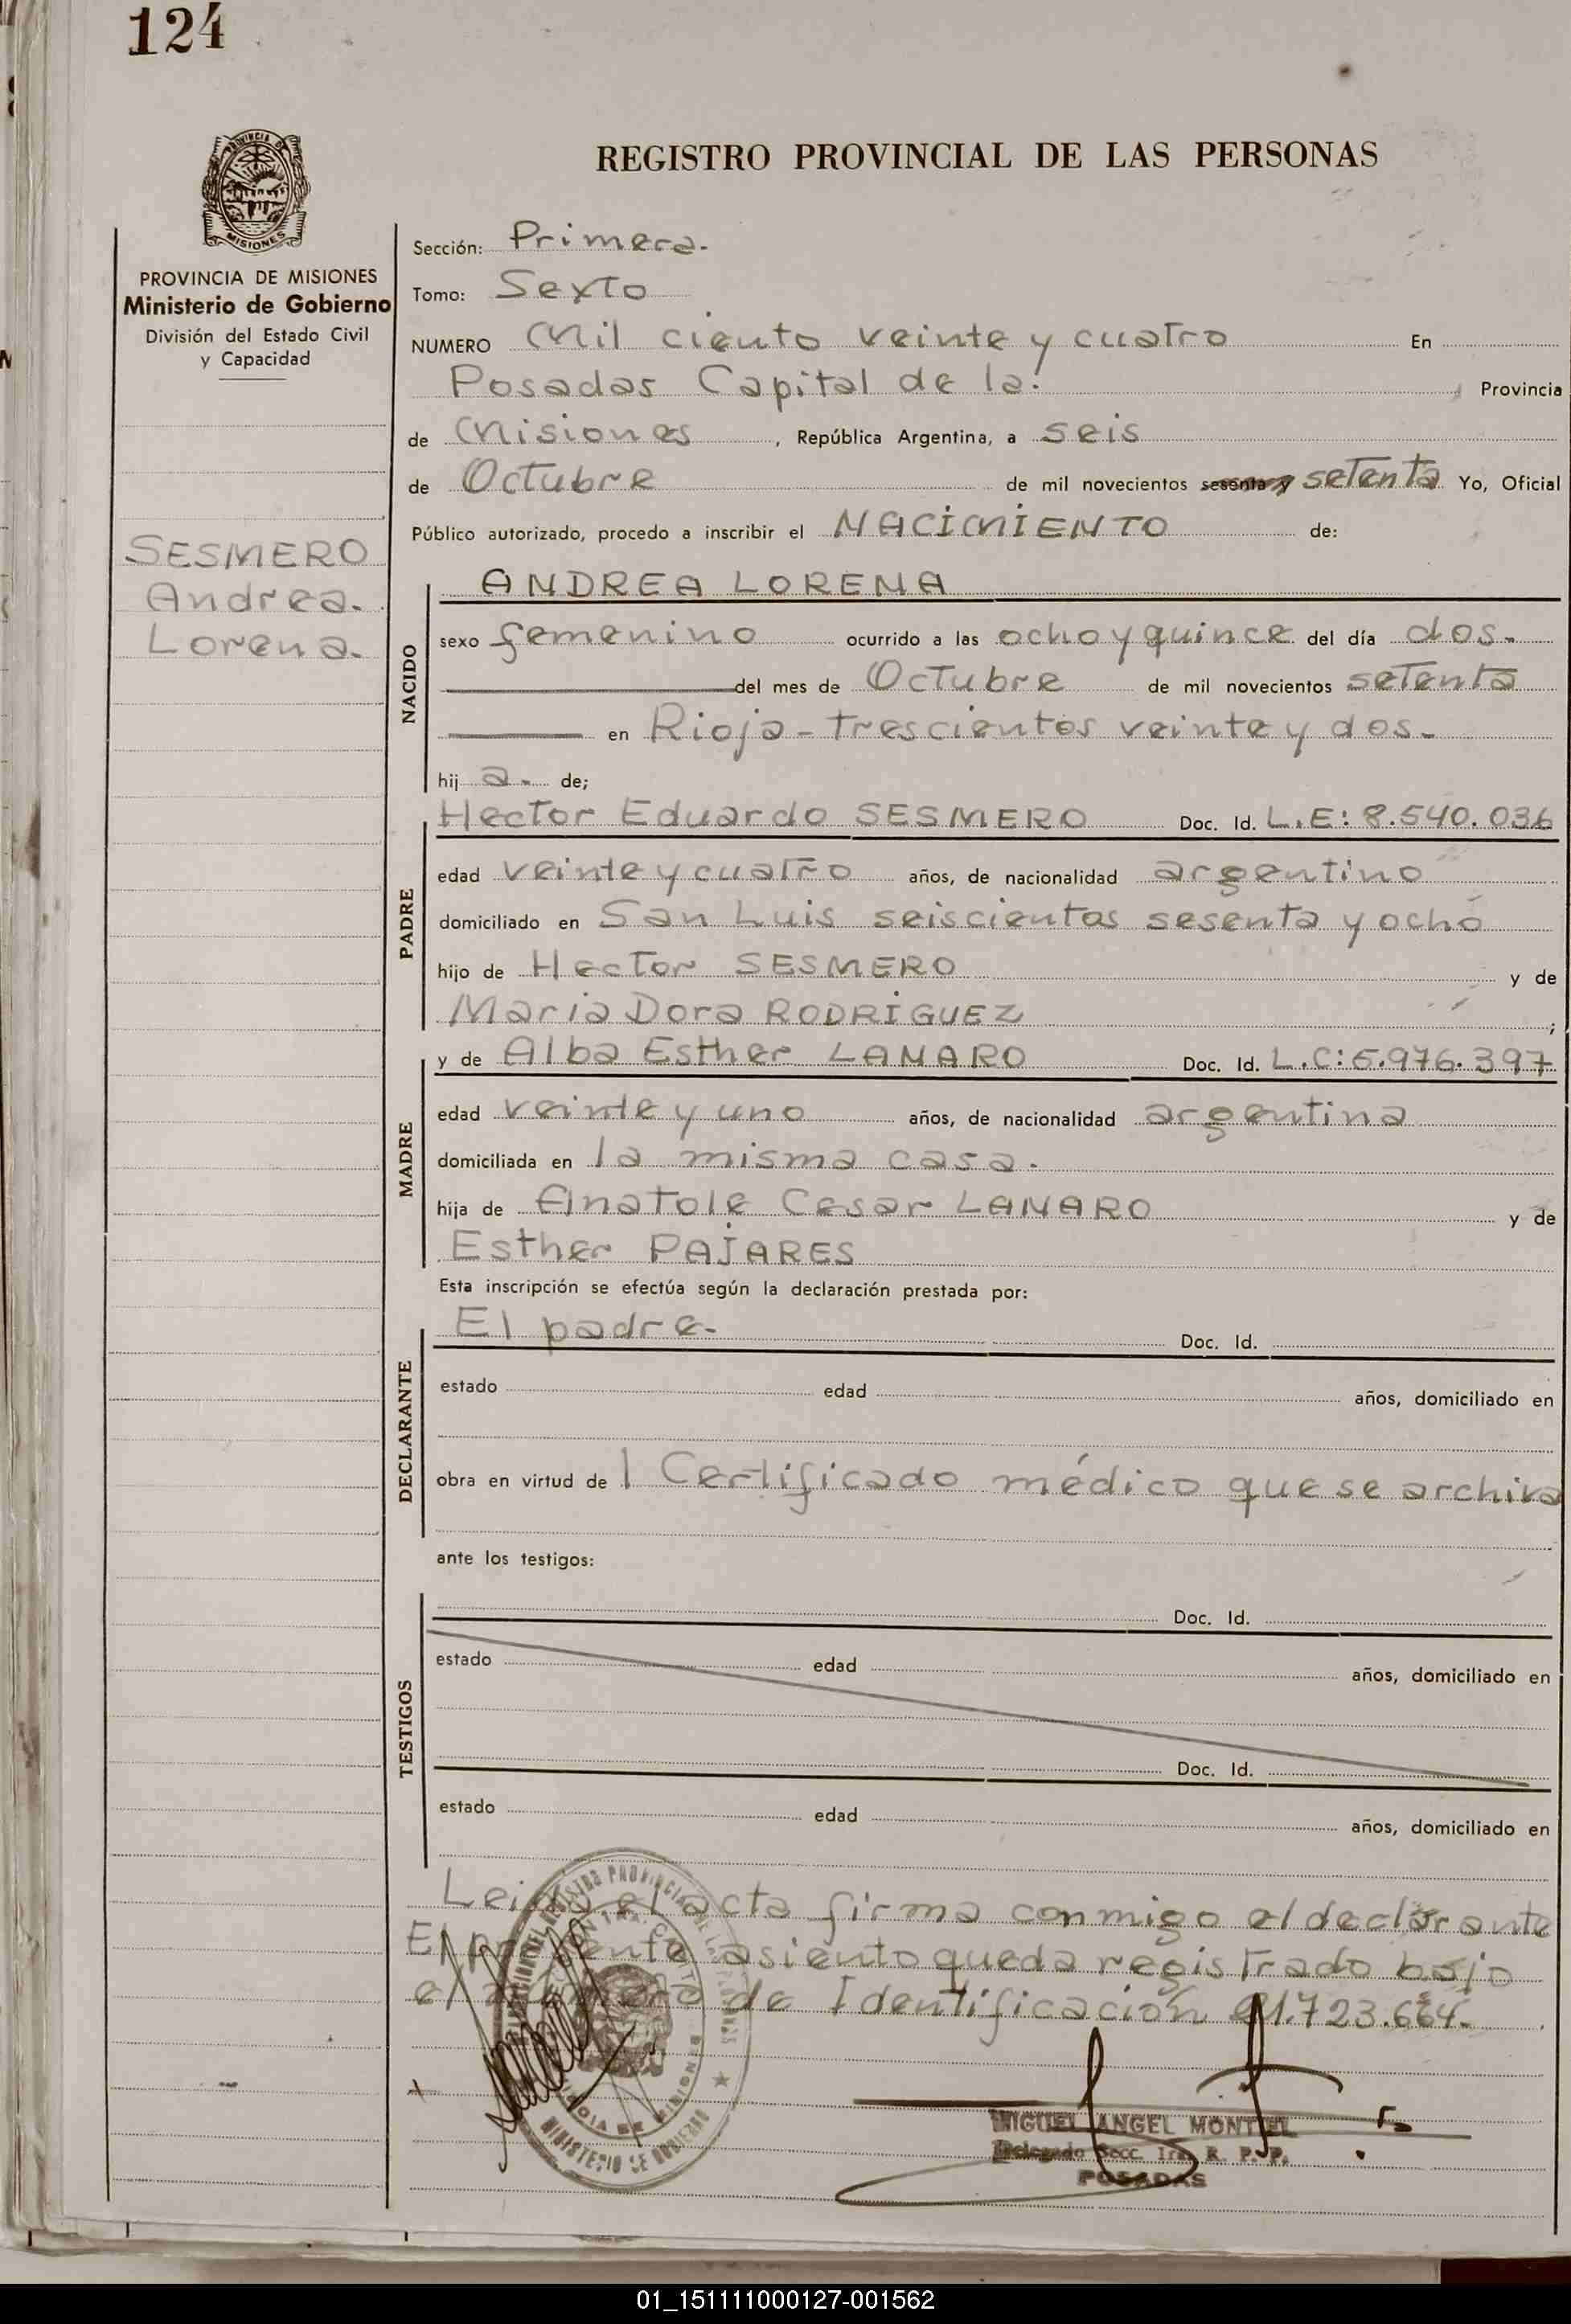 124
PROVINCIA DE MISIONES
Ministerio de Gobierno
División del Estado Civil
y Capacidad
SESMERO
Andrea.
Lorena.
REGISTRO PROVINCIAL DE LAS PERSONAS
Sección: Primera.
Tomo: Sexto
NUMERO Mil ciento veinte y cuatro En
Posadas Capital de la. Provincia
de Misiones, República Argentina, a seis
de Octubre de mil novecientos sesenta y setenta Yo, Oficial
Público autorizado, procedo a inscribir el NACIMIENTO de:
NACIDO
ANDREA LORENA
sexo femenino ocurrido a las ocho y quince del día dos.
del mes de Octubre de mil novecientos setenta
en Rioja - trescientos veinte y dos.
hij a. de;
PADRE
Hector Eduardo SESMERO Doc. Id. L.E: 8.540.036
edad veinte y cuatro años, de nacionalidad argentino
domiciliado en San Luis seiscientos sesenta y ocho
hijo de Hector SESMERO y de
Maria Dora RODRIGUEZ ;
MADRE
y de Alba Esther LANARO Doc. Id. L.C: 5.976.397
edad veinte y uno años, de nacionalidad argentina
domiciliada en la misma casa.
hija de Anatole Cesar LANARO y de
Esther PAJARES
Esta inscripción se efectúa según la declaración prestada por:
DECLARANTE
El padre. Doc. Id.
estado edad años, domiciliado en
obra en virtud de 1 Certificado médico que se archiva
ante los testigos:
TESTIGOS
Doc. Id.
estado edad años, domiciliado en
Doc. Id.
estado edad años, domiciliado en
Leida el acta firma conmigo el declarante
El presente asiento queda registrado bajo
el número de Identificación 21.723.664.
MIGUEL ANGEL MONTIEL
Delegado Secc. 1ra. R. P. P.
POSADAS
MINISTERIO DE GOBIERNO
01_151111000127-001562